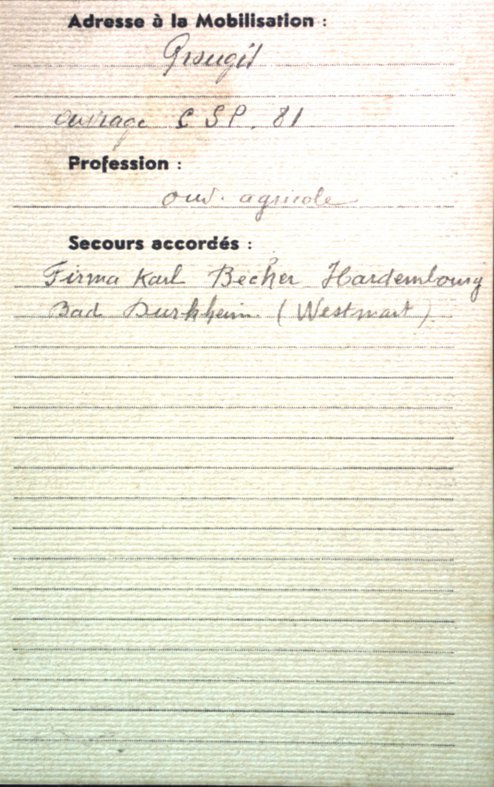 Adresse à la Mobilisation :
Grougis
ouvrage C S P. 81
Profession :
ouv. agricole
Secours accordés :
Firma Karl Becker Hardembourg
Bad Durkheim. (Westmart)